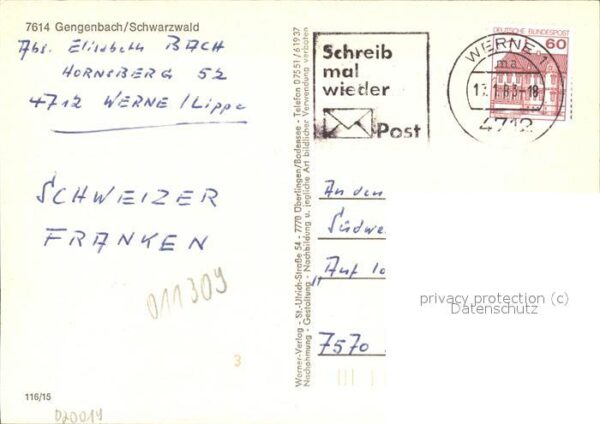 7614 Gengenbach/Schwarzwald
Abs. Elisabeth BACH
HORNEBERG 52
4712 WERNE /Lippe
SCHWEIZER
FRANKEN
011309
3
116/15
020019
Werner-Verlag - St.-Ulrich-Straße 54 - 7770 Überlingen/Bodensee - Telefon 07551/61937
Nachahmung - Gestaltung - Nachbildung u. jegliche Art bildlicher Verwendung verboten
Schreib
mal
wieder
Post
DEUTSCHE BUNDESPOST
60
WERNE 1
ma
13.1.83-18
4712
An den
Südwe
"Auf
7570
privacy protection (c)
Datenschutz